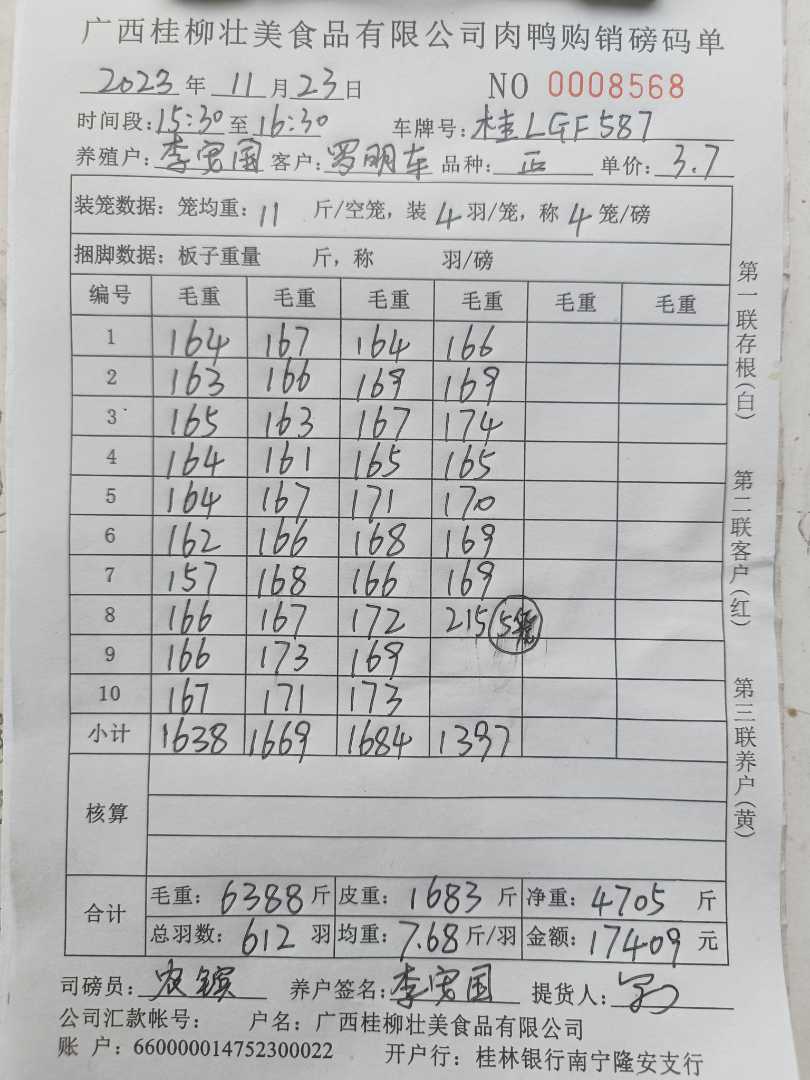 广西桂柳壮美食品有限公司肉鸭购销磅码单
2023 年 11 月 23 日 NO 0008568
时间段: 15:30 至 16:30 车牌号: 桂LGF587
养殖户: 李宽国 客户: 罗明车 品种: 正 单价: 3.7
装笼数据: 笼均重: 11 斤/空笼, 装 4 羽/笼, 称 4 笼/磅
捆脚数据: 板子重量 斤, 称 羽/磅
编号 毛重 毛重 毛重 毛重 毛重 毛重
1 164 167 164 166
2 163 166 169 169
3 165 163 167 174
4 164 161 165 165
5 164 167 171 170
6 162 166 168 169
7 157 168 166 169
8 166 167 172 215 5笼
9 166 173 169
10 167 171 173
小计 1638 1669 1684 1397
核算
合计 毛重: 6388 斤 皮重: 1683 斤 净重: 4705 斤
总羽数: 612 羽 均重: 7.68 斤/羽 金额: 17409 元
司磅员: 农镔 养户签名: 李宽国 提货人:
公司汇款帐号: 户名: 广西桂柳壮美食品有限公司
账 户: 660000014752300022 开户行: 桂林银行南宁隆安支行
第一联存根(白)
第二联客户(红)
第三联养户(黄)